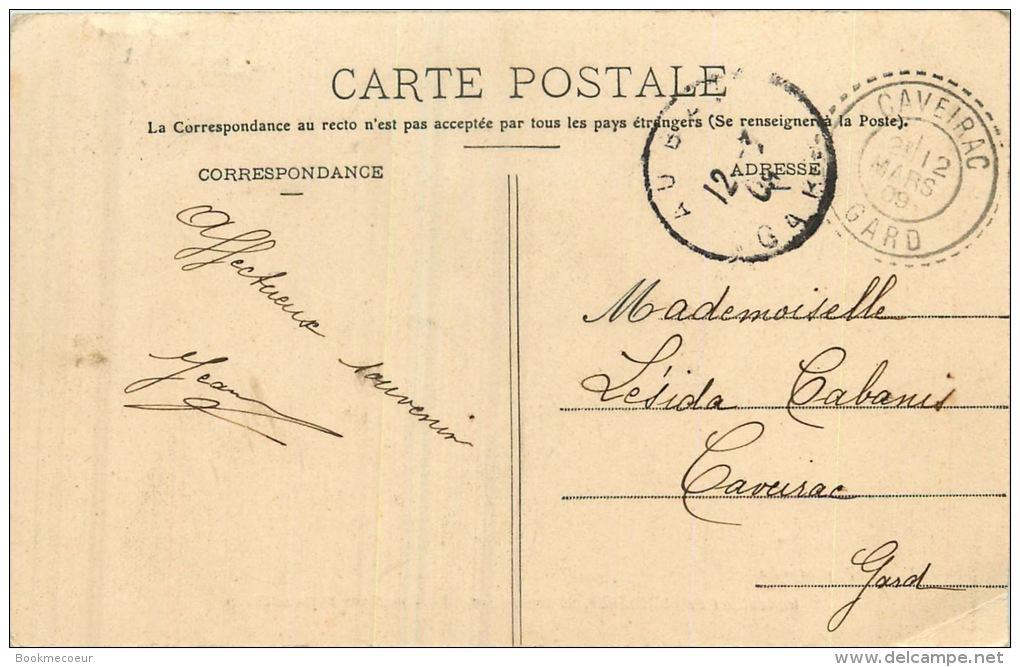 CARTE POSTALE
La Correspondance au recto n'est pas acceptée par tous les pays étrangers (Se renseigner à la Poste).
CORRESPONDANCE
ADRESSE
CAVEIRAC
12
MARS
09
GARD
12
GARD
Affectueux souvenir
Jean
Mademoiselle
Lésida Cabanis
Caveirac
Gard
Bookmecoeur
www.delcampe.net